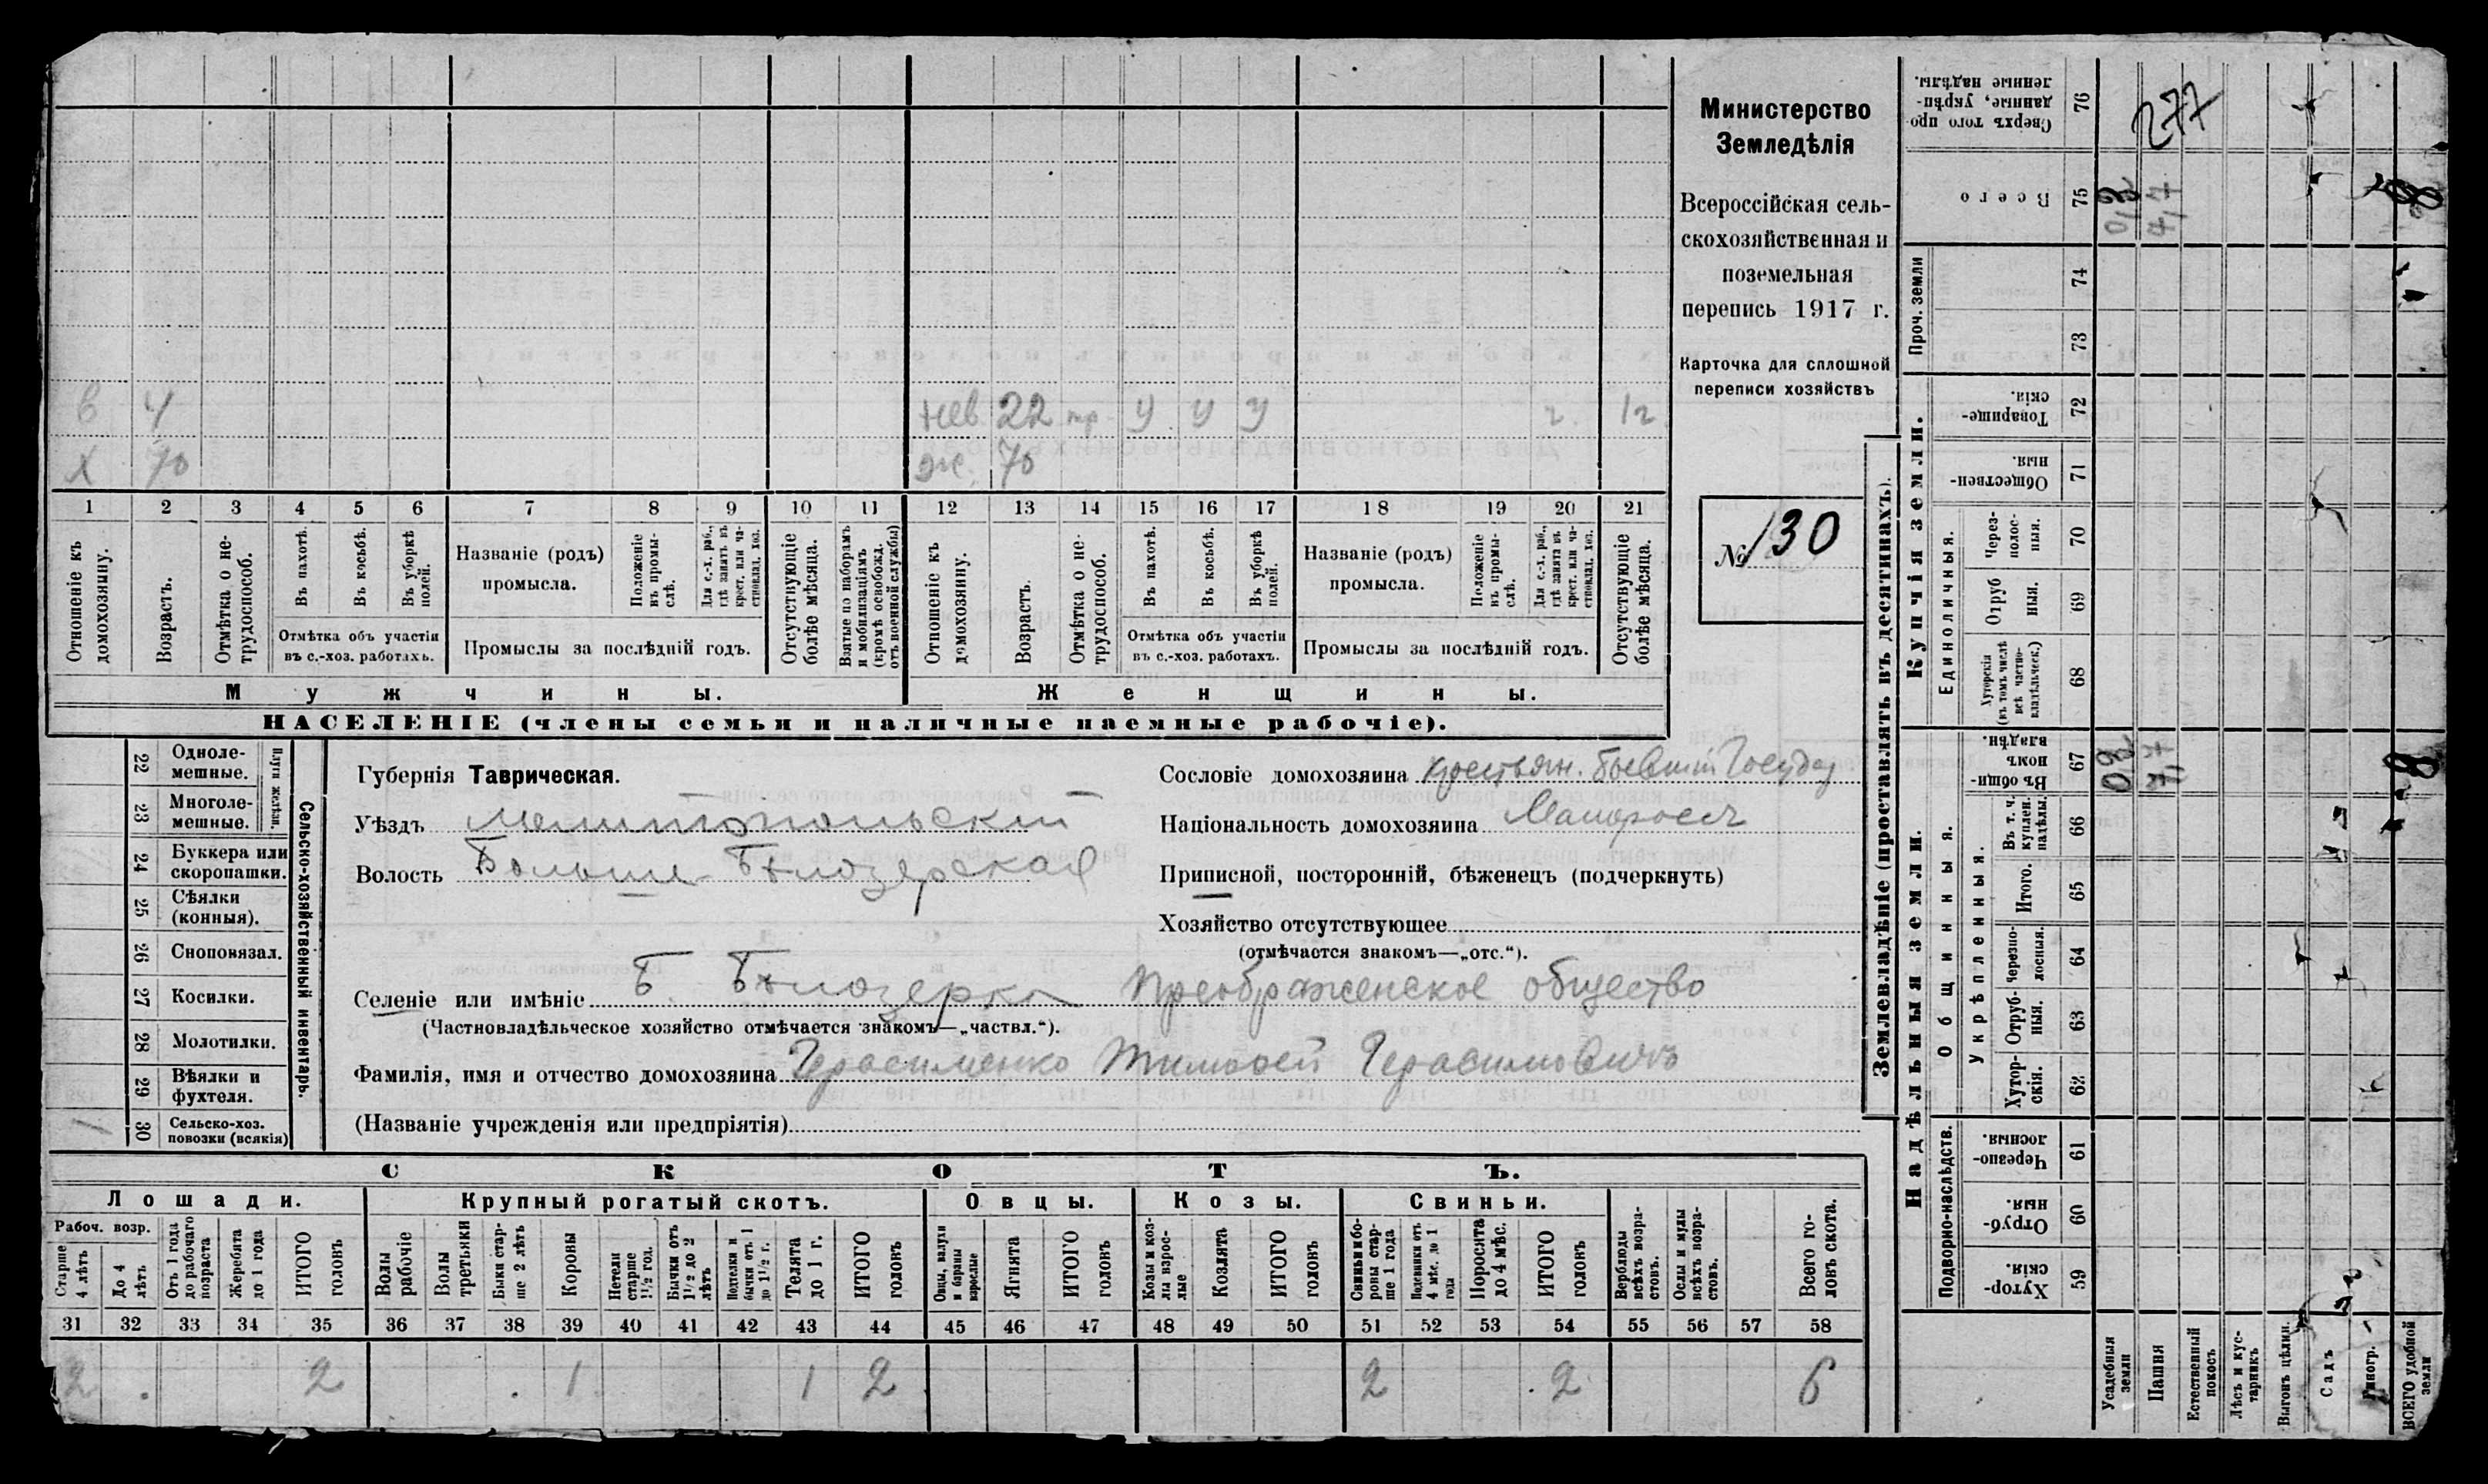 Министерство
Земледѣлія
Всероссійская сель-
скохозяйственная и
поземельная
перепись 1917 г.
Карточка для сплошной
переписи хозяйствъ
№ 130
277
в 4 нев. 22 тр. у у у г. 1 г.
х 70 ж. 70
1 2 3 4 5 6 7 8 9 10 11 12 13 14 15 16 17 18 19 20 21
Отношеніе къ домохозяину.
Возрастъ.
Отмѣтка о не-трудоспособ.
Въ пахотѣ.
Въ косьбѣ.
Въ уборкѣ полей.
Отмѣтка объ участіи
въ с.-хоз. работахъ.
Названіе (родъ)
промысла.
Положеніе въ промы-слѣ.
Для с.-х. раб., гдѣ занятъ въ крест. или ча-стновлад. хоз.
Промыслы за послѣдній годъ.
Отсутствующіе болѣе мѣсяца.
Взятые по наборамъ и мобилизаціямъ (кромѣ освобожд. отъ военной службы)
Отношеніе къ домохозяину.
Возрастъ.
Отмѣтка о не-трудоспособ.
Въ пахотѣ.
Въ косьбѣ.
Въ уборкѣ полей.
Отмѣтка объ участіи
въ с.-хоз. работахъ.
Названіе (родъ)
промысла.
Положеніе въ промы-слѣ.
Для с.-х. раб., гдѣ занята въ крест. или ча-стновлад. хоз.
Промыслы за послѣдній годъ.
Отсутствующіе болѣе мѣсяца.
Мужчины. Женщины.
НАСЕЛЕНІЕ (члены семьи и наличные наемные рабочіе).
22 Одноле-мешные.
23 Многоле-мешные.
Плуги желѣзн.
24 Буккера или скоропашки.
25 Сѣялки (конныя).
26 Сноповязал.
27 Косилки.
28 Молотилки.
29 Вѣялки и фухтеля.
1 30 Сельско-хоз. повозки (всякія)
Сельско-хозяйственный инвентарь.
Губернія Таврическая.
Уѣздъ Мелитопольскій
Волость Больше-Бѣлозерская
Сословіе домохозяина крестьян. бывший Государ
Національность домохозяина Малоросъ
Приписной, посторонній, бѣженецъ (подчеркнуть)
Хозяйство отсутствующее
(отмѣчается знакомъ—„отс.“).
Селеніе или имѣніе Б. Бѣлозерка Преображенское общество
(Частновладѣльческое хозяйство отмѣчается знакомъ—„частвл.“).
Фамилія, имя и отчество домохозяина Герасименко Тимофей Герасимовичъ
(Названіе учрежденія или предпріятія)
СКОТЪ.
Лошади. Крупный рогатый скотъ. Овцы. Козы. Свиньи.
Рабоч. возр.
Старше 4 лѣтъ
До 4 лѣтъ
Отъ 1 года до рабочаго возраста
Жеребята до 1 года
ИТОГО головъ
Волы рабочіе
Волы третьяки
Быки стар-ше 2 лѣтъ
Коровы
Нетели старше 1½ год.
Бычки отъ 1½ до 2 лѣтъ
Подтелки и бычки отъ 1 до 1½ г.
Телята до 1 г.
ИТОГО головъ
Овцы, валухи и бараны взрослые
Ягнята
ИТОГО головъ
Козы и коз-лы взрос-лые
Козлята
ИТОГО головъ
Свиньи и бо-ровы стар-ше 1 года
Подсвинки отъ 4 мѣс. до 1 года
Поросята до 4 мѣс.
ИТОГО головъ
Верблюды всѣхъ возра-стовъ.
Ослы и мулы всѣхъ возра-стовъ.
Всего го-ловъ скота.
31 32 33 34 35 36 37 38 39 40 41 42 43 44 45 46 47 48 49 50 51 52 53 54 55 56 57 58
2 2 1 1 2 2 2 6
Землевладѣніе (проставлять въ десятинахъ).
Купчія земли.
Надѣльныя земли.
Сверхъ того про-данные, укрѣп-ленные надѣлы. 76
Всего 75
Проч. земли 74 73
Товарище-скія. 72
Обществен-ныя. 71
Единоличныя.
Через-полос-ныя. 70
Отруб ныя. 69
Хуторскія (въ томъ числѣ всѣ частно-владѣльческ.) 68
Общинныя.
Въ общи-нномъ владѣн. 67
Укрѣпленныя.
Въ т. ч. куплен. надѣлы. 66
Итого. 65
Черезпо-лосныя. 64
Отруб-ныя. 63
Хутор-скія. 62
Подворно-наслѣдств.
Черезпо-лосныя. 61
Отруб-ныя. 60
Хутор-скія. 59
Усадебныя земли
Пашня
Естественный покосъ
Лѣсъ и кус-тарникъ
Выгонъ цѣлин.
Садъ
Виногр.
ВСЕГО удобной земли